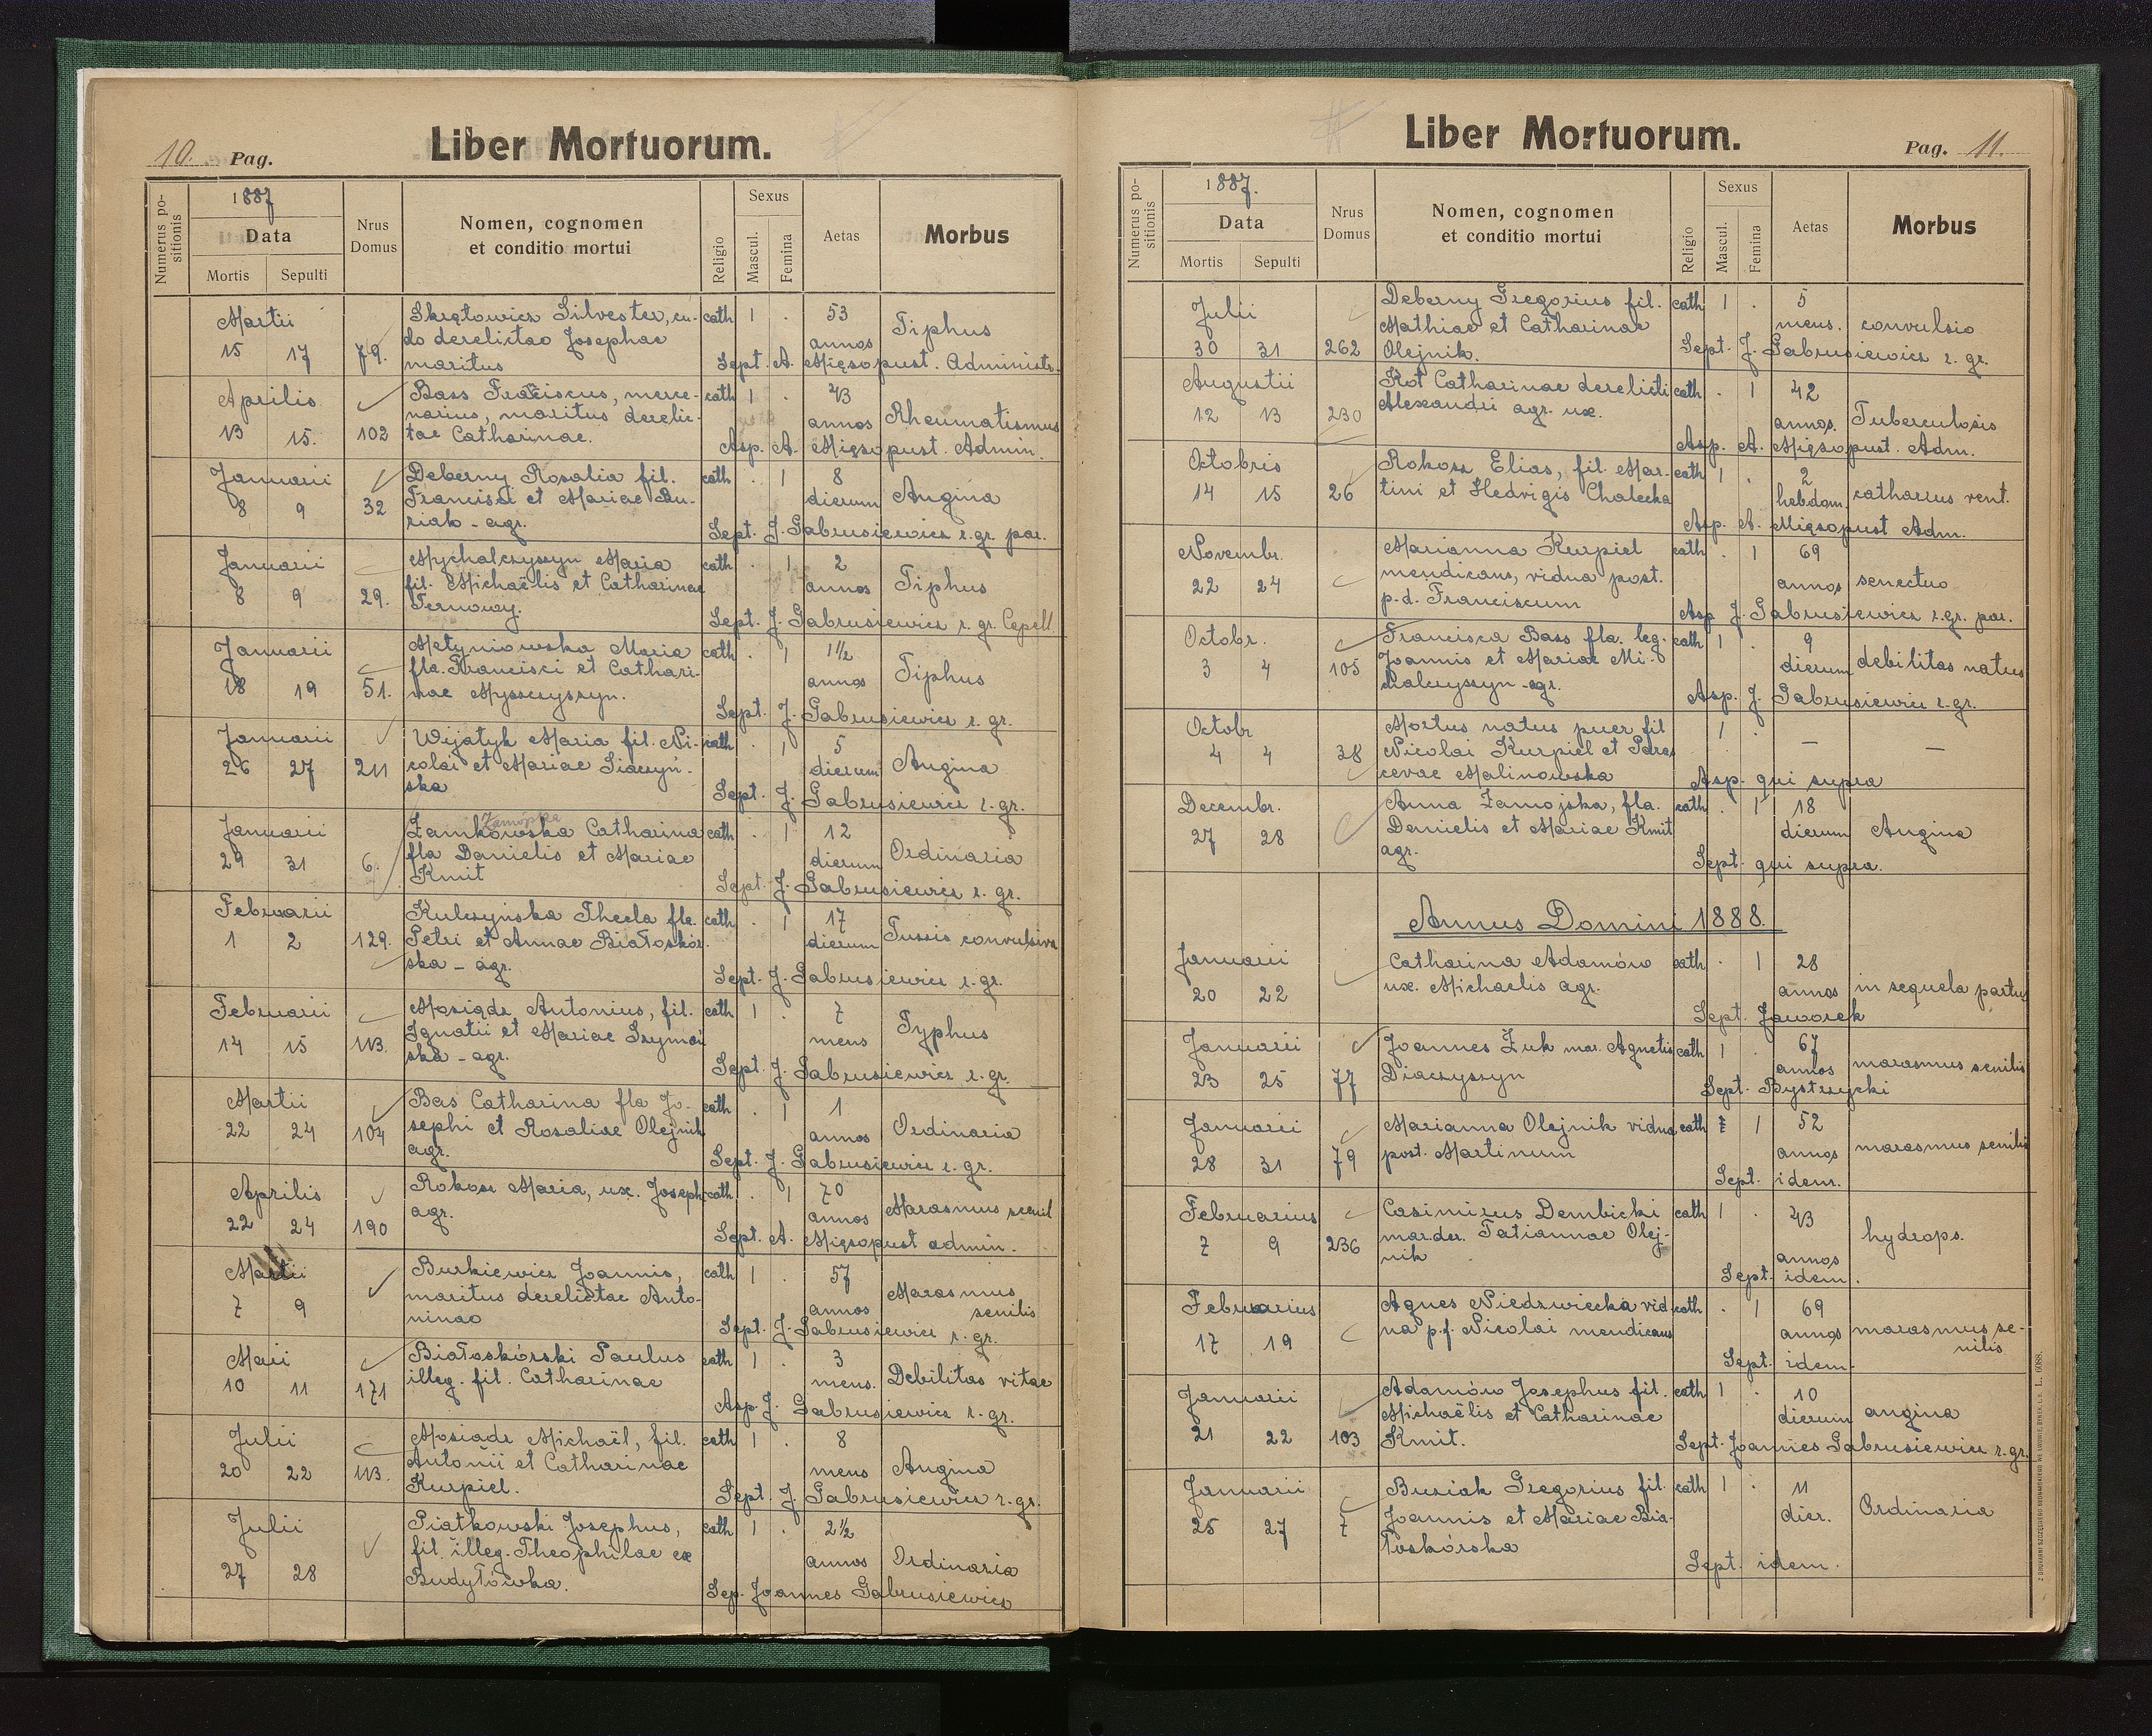 10. Pag.
Liber Mortuorum.
Numerus positionis
1887
Data
Mortis Sepulti
Nrus Domus
Nomen, cognomen et conditio mortui
Religio
Sexus
Mascul. Femina
Aetas
Morbus
Martii 15 17 79.
Skrętowicz Silvester, cu-
do derelictao Josephae
maritus
cath 1 . 53 annos Tiphus
Sept. A. Mięsopust. Administr.
Aprilis 13 15. 102
Bass Franciscus, merce-
narius, maritus derelic-
tae Catharinae.
cath 1 . 43 annos Rheumatismus
Asp. A. Mięsopust. Admin.
Januarii 8 9 32
Deberny Rosalia fil.
Francisci et Mariae Bu-
riak - agr.
cath . 1 8 dierum Angina
Sept. J. Gabrusiewicz r. gr. par.
Januarii 8 9 29.
Mychalczyszyn Maria
fil. Michaëlis et Catharinae
Ternowy.
cath . 1 2 annos Tiphus
Sept. J. Gabrusiewicz r. gr. Capell.
Januarii 18 19 51.
Matyniowska Maria
fla. Francisci et Cathari-
nae Mysszyszyn.
cath . 1 1½ annos Tiphus
Sept. J. Gabrusiewicz r. gr.
Januarii 26 27 211
Wijatyk Maria fil. Ni-
colai et Mariae Siaczyń-
ska
cath . 1 5 dierum Angina
Sept. J. Gabrusiewicz r. gr.
Januarii 29 31 6.
Zamojska
Zamkowska Catharina
fla Danielis et Mariae
Kmit
cath . 1 12 dierum Ordinaria
Sept. J. Gabrusiewicz r. gr.
Februarii 1 2 129.
Kulczyńska Thecla fla.
Petri et Annae Białoskór-
ska - agr.
cath . 1 17 dierum Tussis convulsiva
Sept. J. Gabrusiewicz r. gr.
Februarii 14 15 113.
Mosiądz Antonius, fil.
Ignatii et Mariae Szymań
ska - agr.
cath 1 . 7 mens Typhus
Sept. J. Gabrusiewicz r. gr.
Martii 22 24 104
Bas Catharina fla Jo-
sephi et Rosaliae Olejnik
agr.
cath . 1 1 annos Ordinaria
Sept. J. Gabrusiewicz r. gr.
Aprilis 22 24 190
Rokosz Maria, ux. Joseph
agr.
cath . 1 70 annos Marasmus senil
Sept. A. Mięsopust admin.
Martii 7 9
Burkiewicz Joannis,
maritus derelictae Anto-
ninao
cath 1 . 57 annos Marasmus senilis
Sept. J. Gabrusiewicz r. gr.
Maii 10 11 171
Białoskórski Paulus
illeg. fil. Catharinae
cath 1 . 3 mens. Debilitas vitae
Asp. J. Gabrusiewicz r. gr.
Julii 20 22 113.
Mosiądz Michaël, fil.
Antonii et Catharinae
Kurpiel.
cath 1 . 8 mens Angina
Sept. J. Gabrusiewicz r. gr.
Julii 27 28
Piatkowski Josephus,
fil. illeg. Theophilae ex
Budyłówka.
cath 1 . 2½ annos Ordinaria
Sep. Joannes Gabrusiewicz
Liber Mortuorum.
Pag. 11.
Numerus positionis
1887.
Data
Mortis Sepulti
Nrus Domus
Nomen, cognomen et conditio mortui
Religio
Sexus
Mascul. Femina
Aetas
Morbus
Julii 30 31 262
Deberny Gregorius fil.
Mathiae et Catharinae
Olejnik.
cath 1 . 5 mens. convulsio
Sept. J. Gabrusiewicz r. gr.
Augustii 12 13 230
Kot Catharinae derelicti
Alexandri agr. ux.
cath . 1 42 annos. Tuberculosis
Asp. A. Mięsopust. Adm.
Octobris 14 15 26
Rokosz Elias, fil. Mar-
tini et Hedvigis Chalecka
cath 1 . 2 hebdom. catharrus vent.
Asp. A. Mięsopust Adm.
Novembr. 22 24
Marianna Kurpiel
mendicans, vidua post.
p. d. Franciscum
cath . 1 69 annos senectus
Asp J. Gabrusiewicz r. gr. par.
Octobr. 3 4 105
Francisca Bass fla. leg.
Joannis et Mariae Mi-
chalczyszyn - agr.
cath 1 . 9 dierum debilitas natus
Asp. J. Gabrusiewicz r. gr.
Octobr 4 4 38
Mortus natus puer fil
Nicolai Kurpiel et Paras
cevae Malinowska
1 . — —
Asp. qui supra
Decembr. 27 28
Anna Zamojska, fla.
Danielis et Mariae Kmit
agr.
cath . 1 18 dierum Angina
Sept. qui supra.
Annus Domini 1888.
Januarii 20 22
Catharina Adamów
ux. Michaelis agr.
cath . 1 28 annos in sequela partus
Sept. Jaworek
Januarii 23 25 77
Joannes Żuk mar. Agnetis
Diaczyszyn
cath 1 . 67 annos marasmus senilis
Sept. Bystrzycki
Januarii 28 31 79
Marianna Olejnik vidua
post. Martinum
cath 1 52 annos marasmus senilis
Sept. idem.
Februarius 7 9 236
Casimirus Dembicki
mar. der. Tatiannae Olej-
nik
cath 1 . 43 annos hydrops.
Sept. idem.
Februarius 17 19
Agnes Niedzwiecka vid
ua p. f. Nicolai mendicans
cath . 1 69 annos marasmus se-
nilis
Sept. idem.
Januarii 21 22 103
Adamów Josephus fil.
Michaëlis et Catharinae
Kmit.
cath 1 . 10 dierum angina
Sept. Joannes Gabrusiewicz r. gr.
Januarii 25 27 7
Buriak Gregorius fil.
Joannis et Mariae Bia-
łoskórska
cath 1 . 11 dier. Ordinaria
Sept. idem.